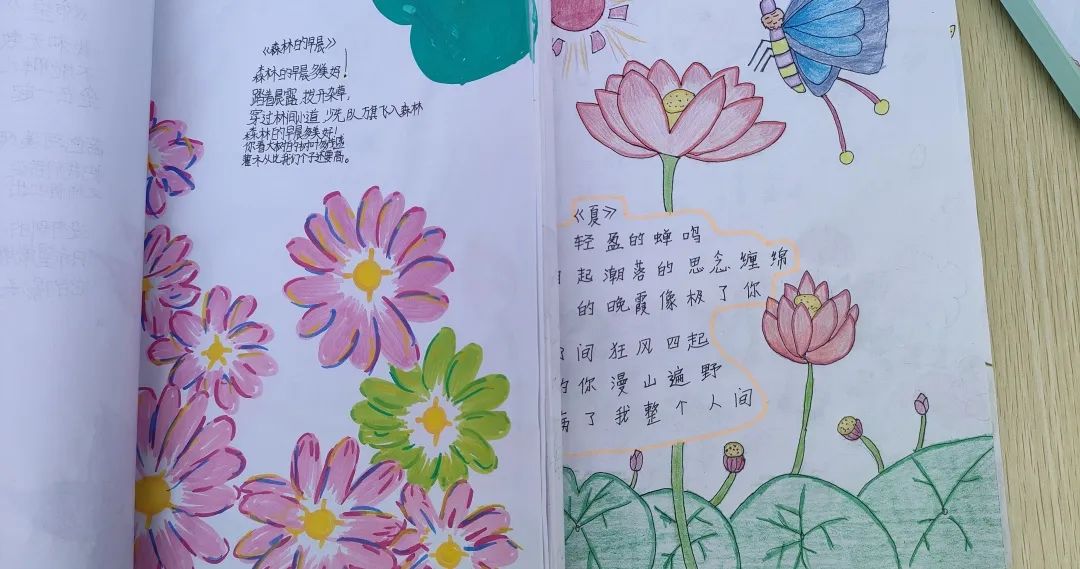 《森林的早晨》
森林的早晨多美好!
踏着晨露,拨开杂草,
穿过林间小道,少先队万旗飞入森林
森林的早晨多美好!
你看大树的树叶多茂盛
灌木丛比我们个子还要高。
《夏》
轻盈的蝉鸣
起潮落的思念缠绵
的晚霞像极了你
间狂风四起
的你漫山遍野
了我整个人间